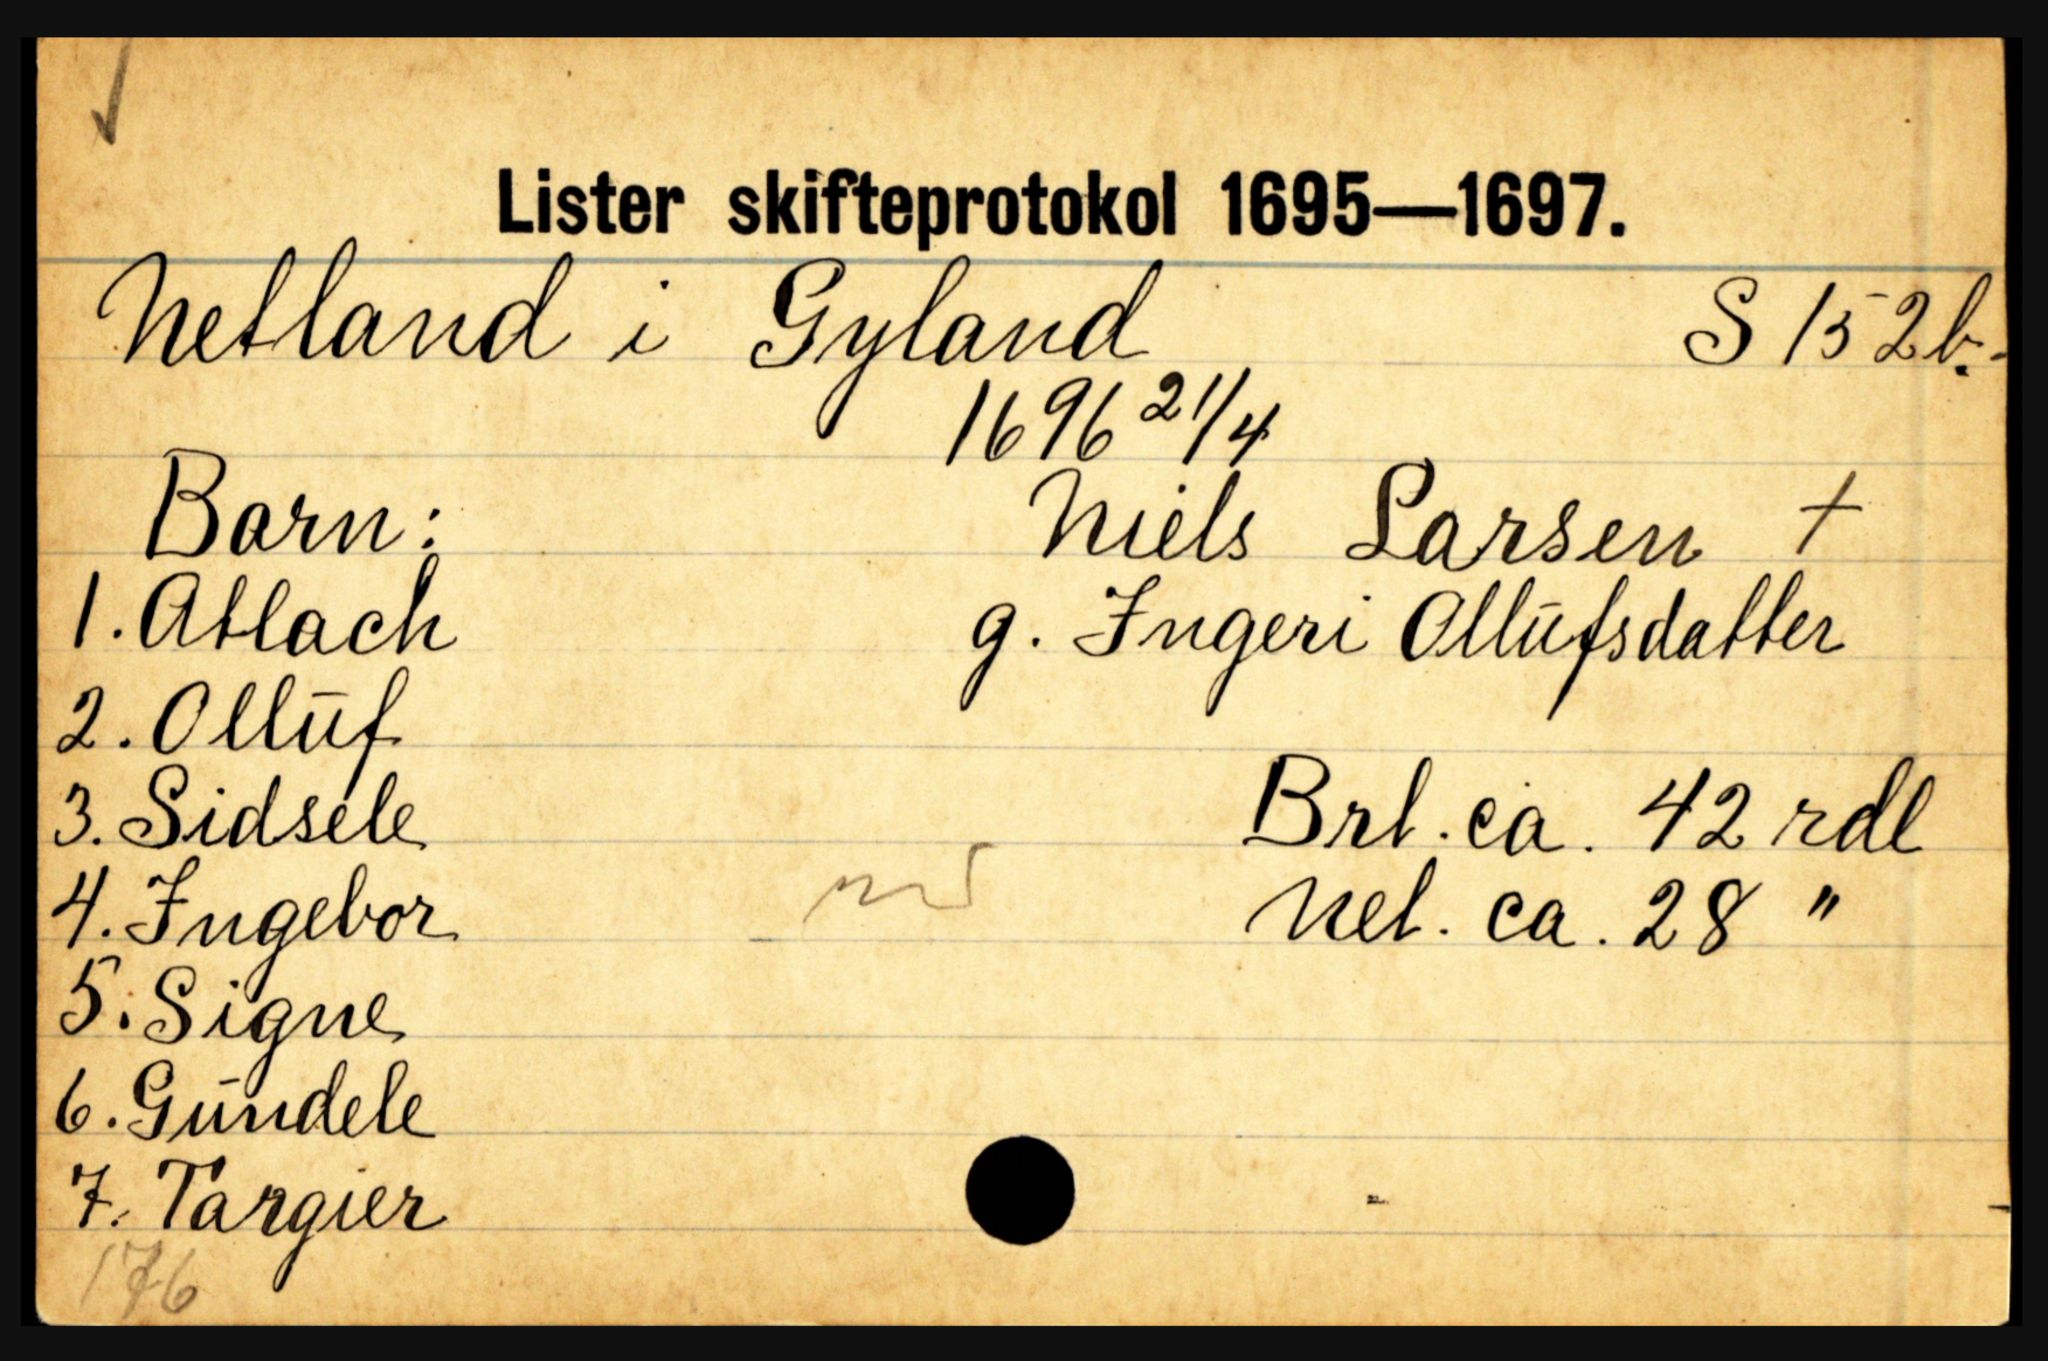 Lister skifteprotokol 1695—1697.
Netland i Gyland S 152b.
1696 21/4
Barn: Niels Larsen +
1. Atlach g. Ingeri Ollūfsdatter
2. Ollūf
3. Sidsele Brt. ca. 42 rdl
4. Ingebor Net. ca. 28 "
5. Signe
6. Gūndele
7. Targier
176